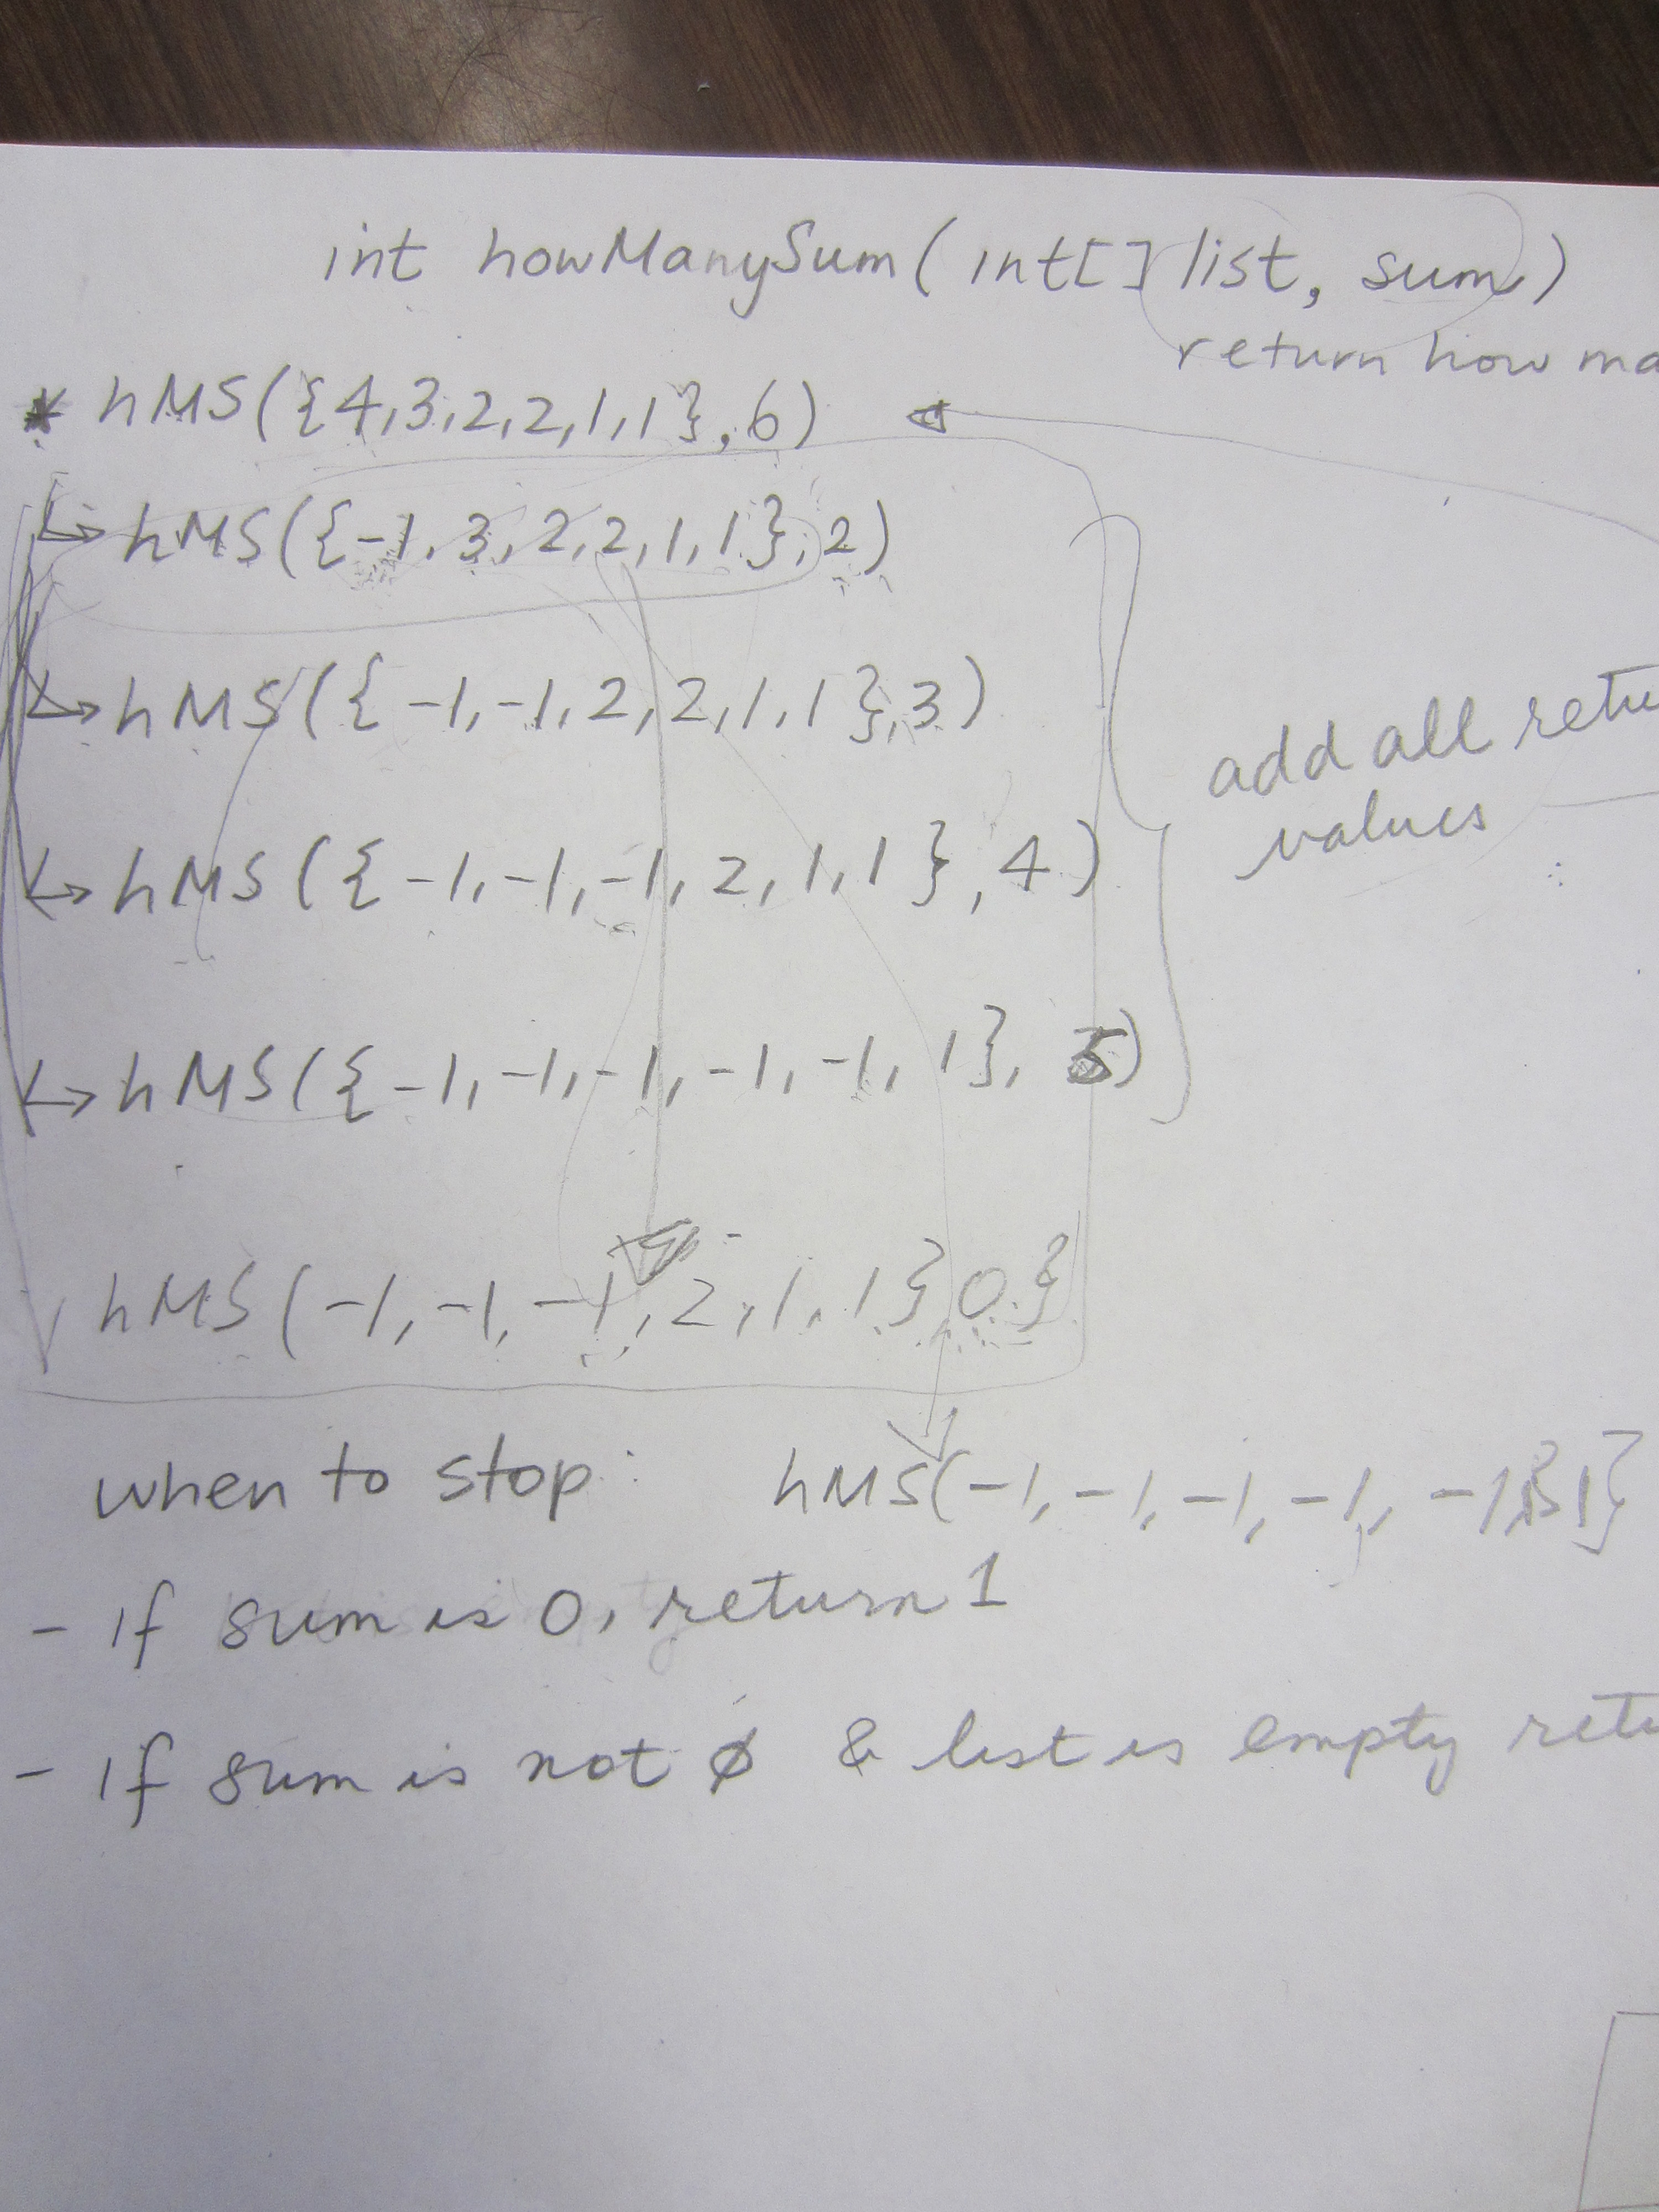 int howManySum(int[] list, sum)
return how ma
* hMS({4,3,2,2,1,1},6)
hMS({-1,3,2,2,1,1},2)
hMS({-1,-1,2,2,1,1},3)
add all retu
values
hMS({-1,-1,-1,2,1,1},4)
hMS({-1,-1,-1,-1,-1,1},5)
hMS(-1,-1,-1,2,1,1}0}
when to stop: hMS(-1,-1,-1,-1,-1, 1}
- if sum is 0, return 1
- if sum is not 0 & list is empty retu